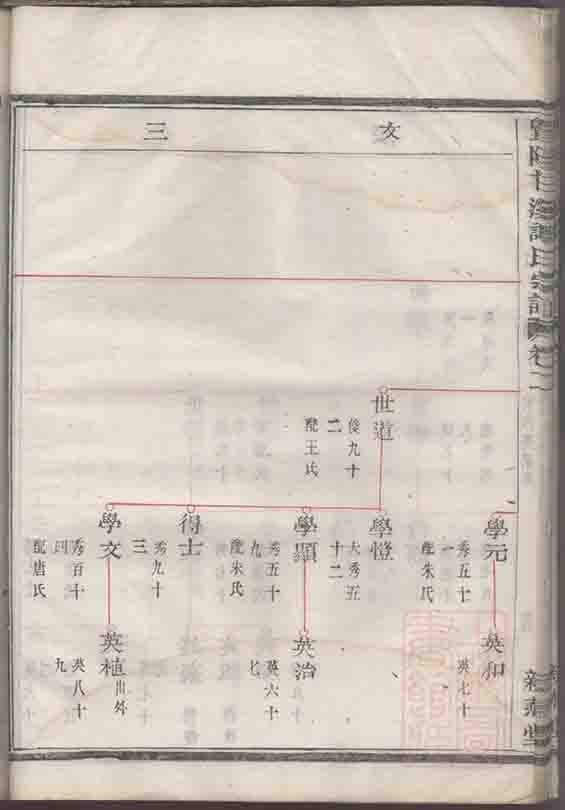 文
三
陽
氏宗譜
卷二
世道
俊九十
二
配王氏
學元
秀五十
一
配朱氏
學愷
大秀五
十二
學顯
秀五十
九
配朱氏
得士
秀九十
三
學文
秀百十
四
配唐氏
英和
英七十
英治
英六十
七
英植
出外
英八十
九